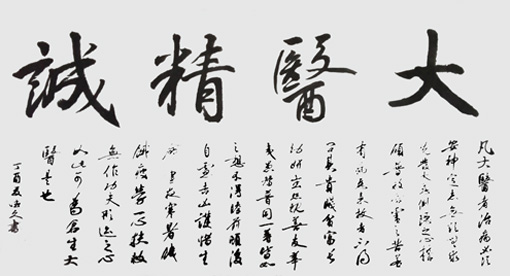 大醫精誠
凡大醫者治病必須
安神定志無欲無求
先發大慈惻隱之心誓
願普救含靈之苦若
有疾厄來求救者不得
問其貴賤貧富長
幼妍媸怨親善友華
夷愚智普同一等皆如
之想不得瞻前顧後
自慮吉凶護惜生
晝夜寒暑
渴疲勞一心赴救
無作功夫形迹之心
如此可為蒼生大
醫者也
丁酉夏 書